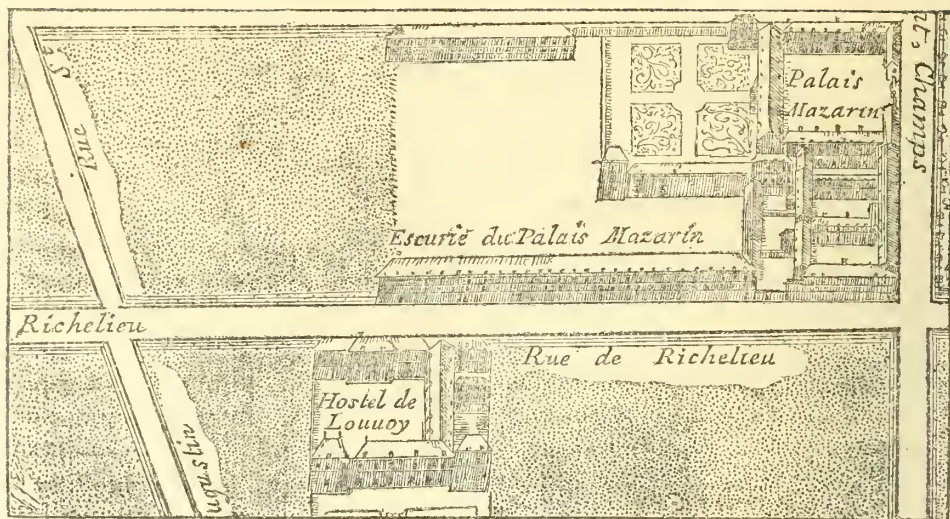 Rue St
nt. Champs
Palais
Mazarin
Escurie du Palais Mazarin
Richelieu
Rue de Richelieu
Hostel de
Louuoy
ugustin